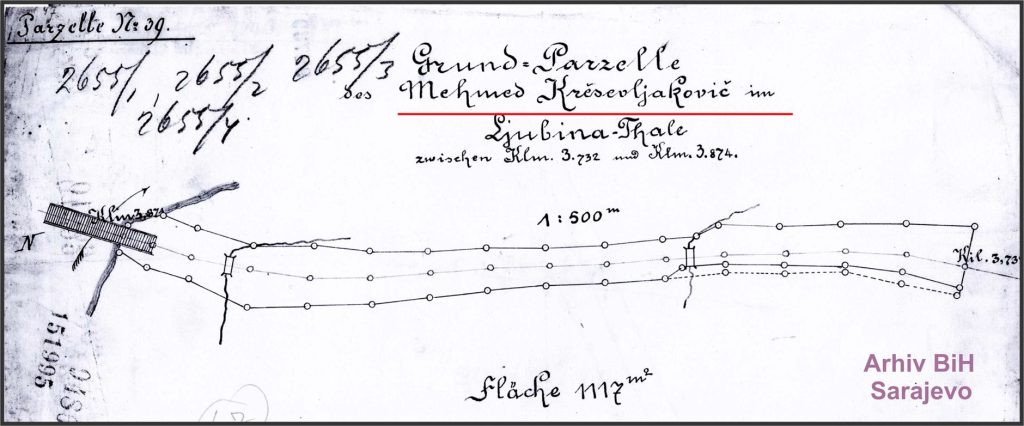 Parzelle No: 39.
2655/1, 2655/2 2655/3
2655/4
Grund-Parzelle
des Mehmed Krěsevljakovič im
Ljubina-Thale
zwischen Klm. 3.732 und Klm. 3.874.
1:500 m
Klm 3.874
N
Kil. 3.73
151995
Fläche 1117 m²
Arhiv BiH
Sarajevo